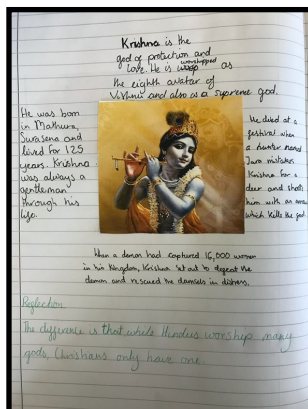 Krishna is the
god of protection and
love. He is worshipped as
the eighth avatar of
Vishnu and also as a supreme god.
He was born
in Mathura,
Surasena and
lived for 125
years. Krishna
was always a
gentleman
through his
life.
He died at a
festival when
a hunter named
Jara mistakes
Krishna for a
deer and shoots
him with an arrow
which kills the god.
When a demon had captured 16,000 women
in his kingdom, Krishna set out to defeat the
demon and rescued the damsels in distress.
Reflection
The difference is that while Hindus worship many
gods, Christians only have one.